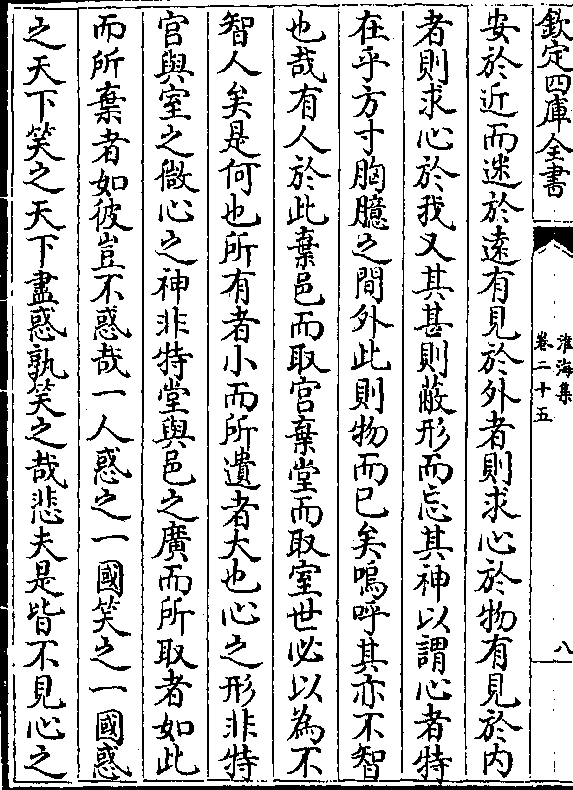 欽定四庫全書
淮海集
卷二十五
八
安於近而迷於遠有見於外者則求心於物有見於内
者則求心於我又其甚則蔽形而忘其神以謂心者特
在乎方寸胸臆之間外此則物而已矣嗚呼其亦不智
也哉有人於此棄邑而取宫棄堂而取室世必以為不
智人矣是何也所有者小而所遺者大也心之形非特
官與室之㣲心之神非特堂與邑之廣而所取者如此
而所棄者如彼豈不惑哉一人惑之一國笑之一國惑
之天下笑之天下盡惑孰笑之哉悲夫是皆不見心之